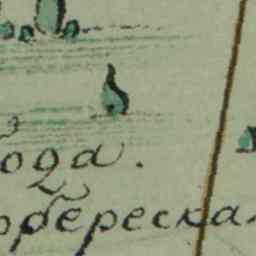 ода.
обереска.